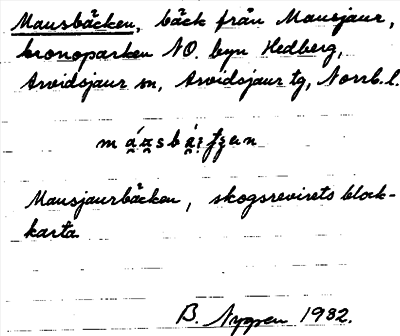 Mausbäcken, bäck från Mausjaur,
kronoparken NO. byn Hedberg,
Arvidsjaur sn, Arvidsjaur tg, Norrb. l.
Mausjaurbäcken, skogsrevirets block-
karta
B. Nygren 1932.